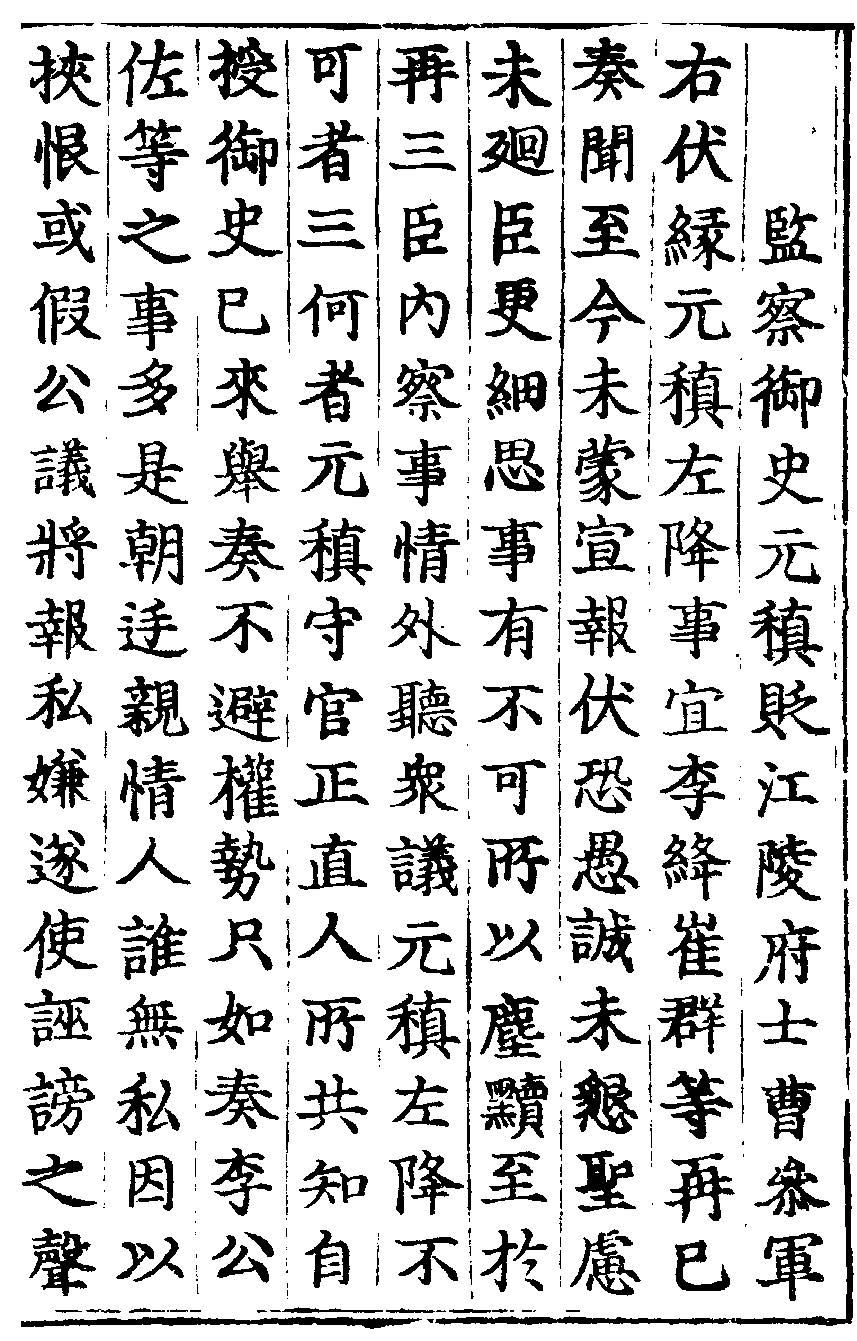 監察御史元稹貶江陵府士曹叅軍
右伏緣元稹左降事宜李絳崔群等再已
奏聞至今未蒙宣報伏恐愚誠未懇聖慮
未廻臣更細思事有不可所以塵黷至於
再三臣內察事情外聽衆議元稹左降不
可者三何者元稹守官正直人所共知自
授御史已來舉奏不避權勢只如奏李公
佐等之事多是朝廷親情人誰無私因以
挾恨或假公議將報私嫌遂使誣謗之聲